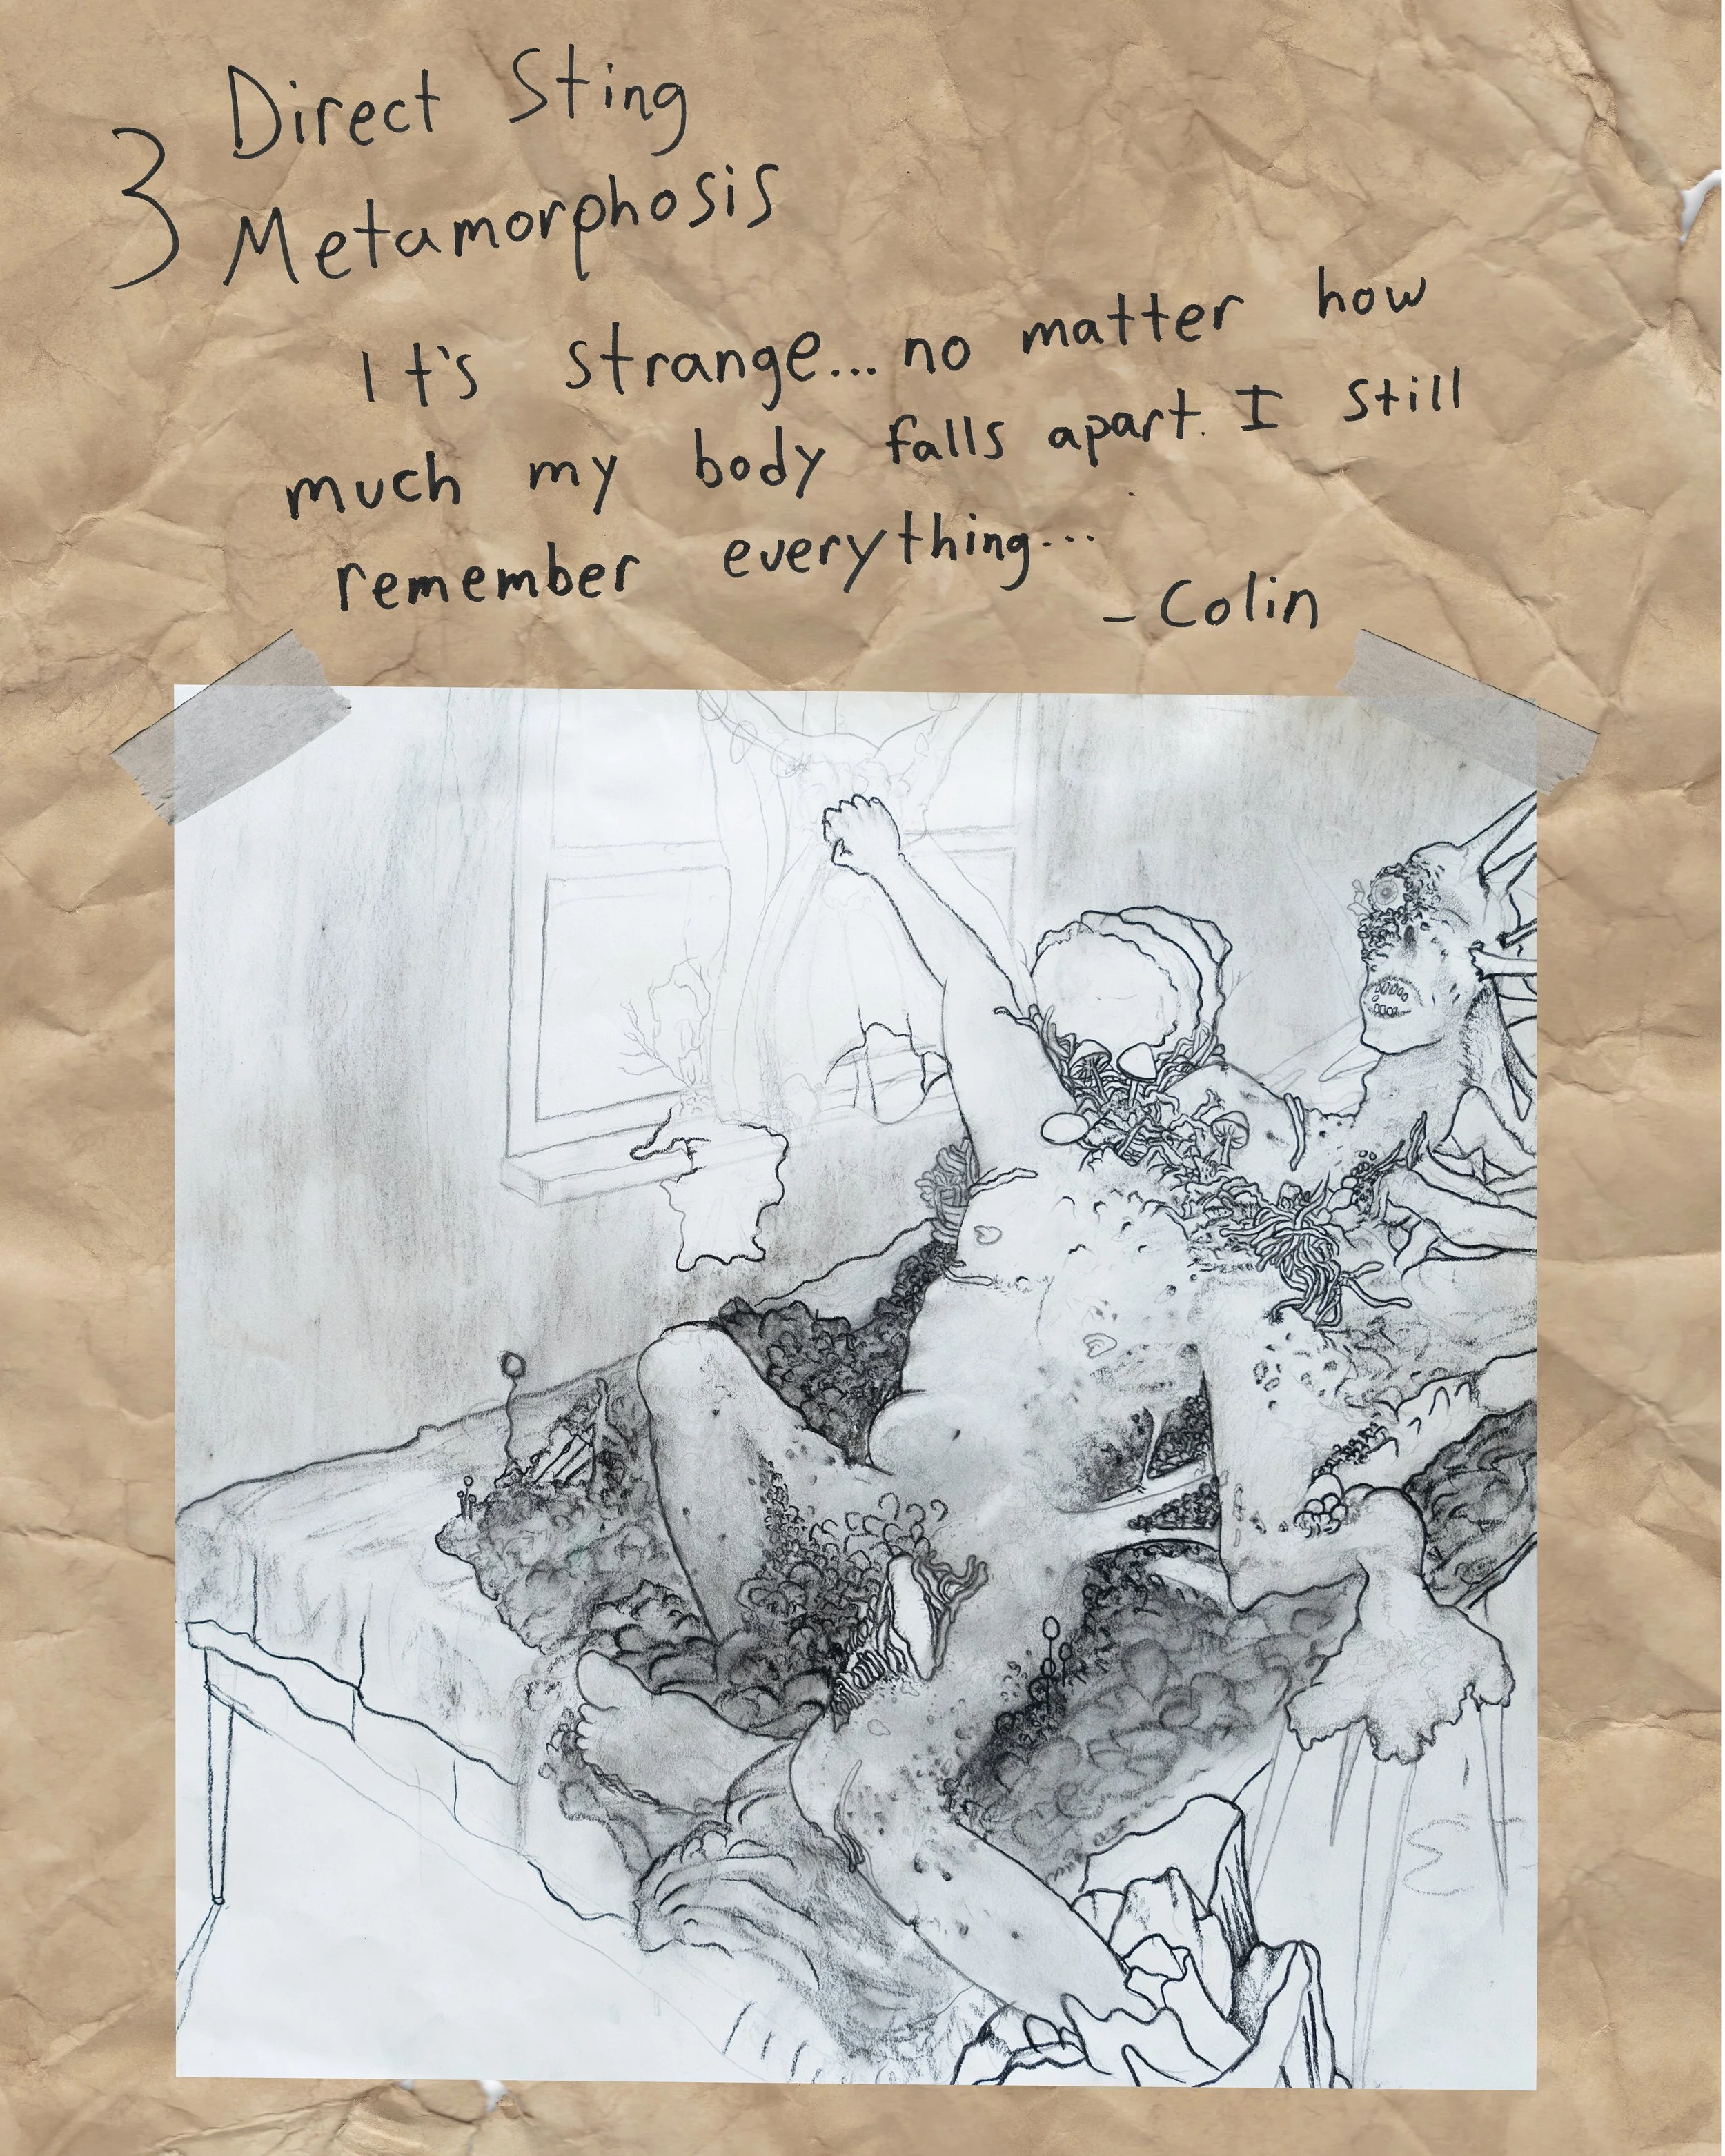 3 Direct Sting
Metamorphosis
It's strange... no matter how
much my body falls apart. I still
remember everything...
- Colin